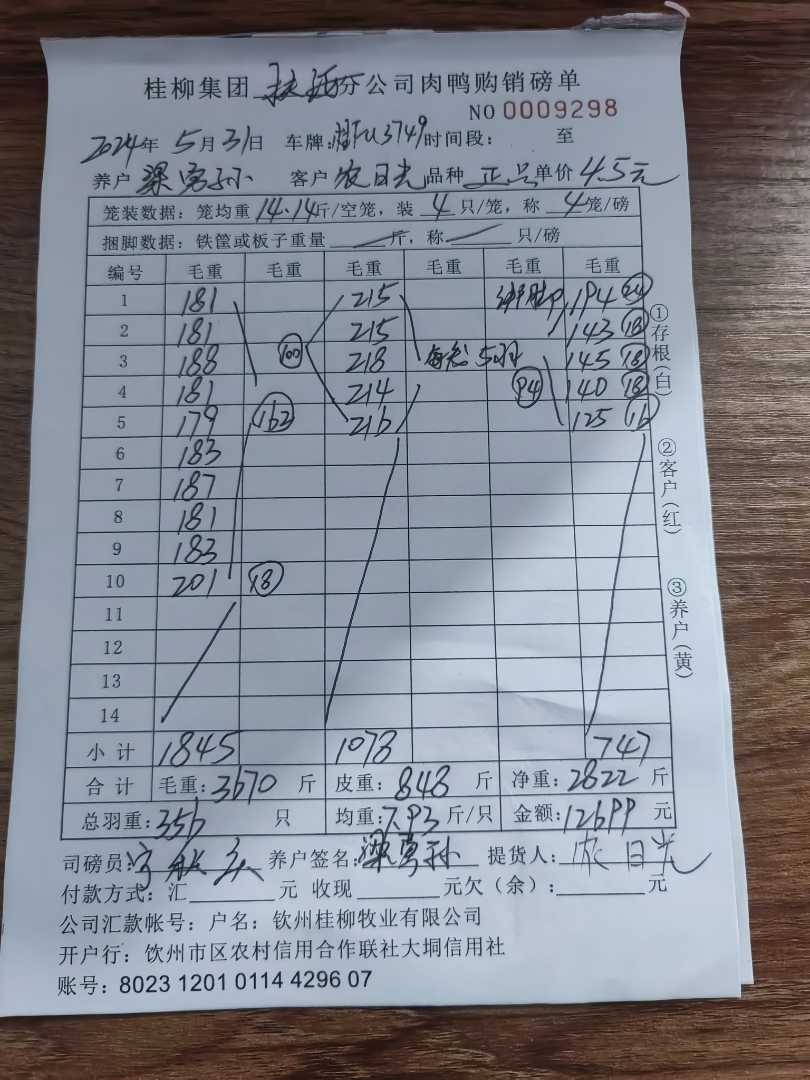 桂柳集团 分公司肉鸭购销磅单
NO 0009298
2024年 5月31日 车牌: 3749 时间段: 至
养户 梁 孙 客户 农日光 品种 正品 单价 4.5元
笼装数据: 笼均重 14.14斤/空笼, 装 4 只/笼, 称 4 笼/磅
捆脚数据: 铁筐或板子重量 斤, 称 只/磅
编号 毛重 毛重 毛重 毛重 毛重 毛重
1 181 215 194 24
2 181 215 143 18
3 188 100 218 每笼5羽 145 18
4 181 214 94 140 18
5 179 162 216 125 16
6 183
7 187
8 181
9 183
10 201 18
11
12
13
14
小计 1845 1078 747
合计 毛重: 3670 斤 皮重: 848 斤 净重: 2822 斤
总羽重: 356 只 均重: 7.93 斤/只 金额: 12699 元
司磅员: 养户签名: 梁 孙 提货人: 农日光
付款方式: 汇 元 收现 元欠(余): 元
公司汇款帐号: 户名: 钦州桂柳牧业有限公司
开户行: 钦州市区农村信用合作联社大垌信用社
账号: 8023 1201 0114 4296 07
①存根(白)
②客户(红)
③养户(黄)